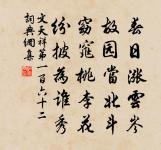 春日漲雲岑
故园當北斗
窈窕桃李花
紛披為誰秀
文天祥第一百六十二
詞典網集